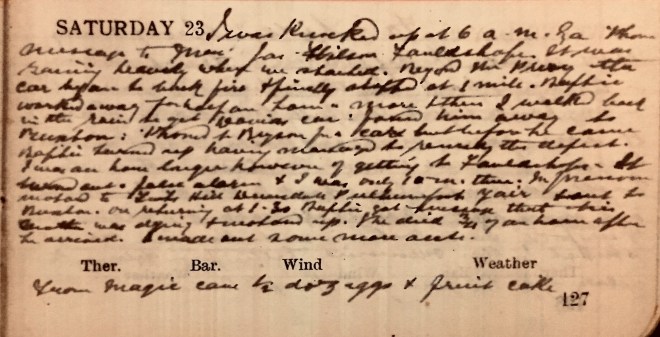 SATURDAY 23 I was knocked up at 6 a.m. by a 'Phone
message to Mrs Jas Wilson Fauldshope. It was
raining heavily when we started. Beyond the the
car began to back fire & finally stopped at 1 mile. Baptie
worked away for half an hour & more & then I walked back
in the rain to get car. found him away to
: 'Phoned to Bryson for a car but before he came
Baptie turned up having managed to remedy the defect.
I was an hour longer however of getting to Fauldshope. It
turned out a false alarm & I was only 10 m. there. In forenoon
motored to Hill Fair & went to
. On returning at 1.30 Baptie got message that his
mother was dying & motored up. She died 3/4 of an hour after
he arrived. I made out some more accts.
Ther. Bar. Wind Weather
From Magic came ½ doz eggs & fruit cake
127